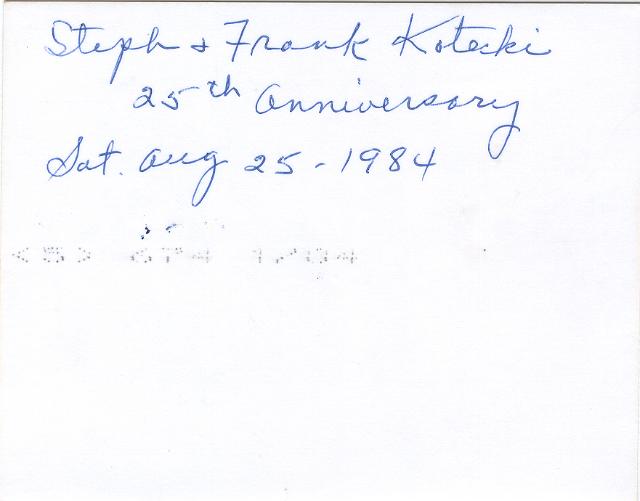 Steph & Frank Kotecki
25th Anniversary
Sat. Aug 25 - 1984